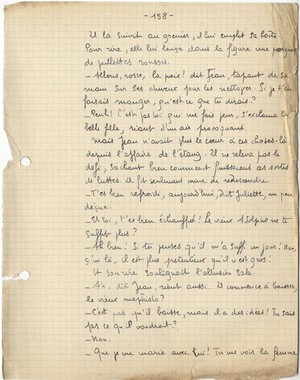 - 158 -
Il la suivit au grenier, où il lui la boîte.
Pour rire, elle lui lança dans la figure une poignée
de paillettes rousses.
- Allons, rosse, la paix ! dit Jean, tapant de sa
main sur ses cheveux pour les nettoyer. Si je t'en
faisais manger, qu'est-ce que tu dirais ?
- Peuh ! C'est pas toi que me fais peur, s'exclama la
belle fille, riant d'un air provoquant.
Mais Jean n'avait plus le cœur à ces choses-là
depuis l'affaire de l'étang. Il ne releva pas le
défi, sachant bien comment finissent ces sortes
de luttes. Il fit seulement mine de redescendre.
- T'es bien refroidi, aujourd'hui, dit Juliette, un peu
déçue.
- Et toi, t'es bien échauffée ! Le vieux Adolphe ne te
suffit plus ?
- Ah bien ! Si tu penses qu'il m'a suffi un jour ! Non,
j'ai là, il est plus qu'il n'est gros !
Et son rire soulignait l'allusion sale.
- Ah, dit Jean, riant aussi. Il commence à baisser,
le vieux
- C'est pas qu'il baisse, mais il a des idées ! Tu sais
pas ce qu'il voudrait ?
- Non.
- Que je me marie avec lui ! Tu me vois la femme